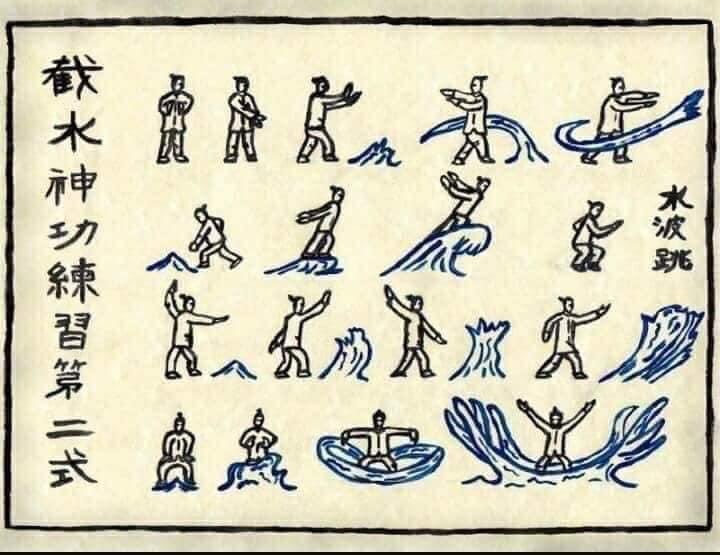 截水神功練習第二式
水波跳